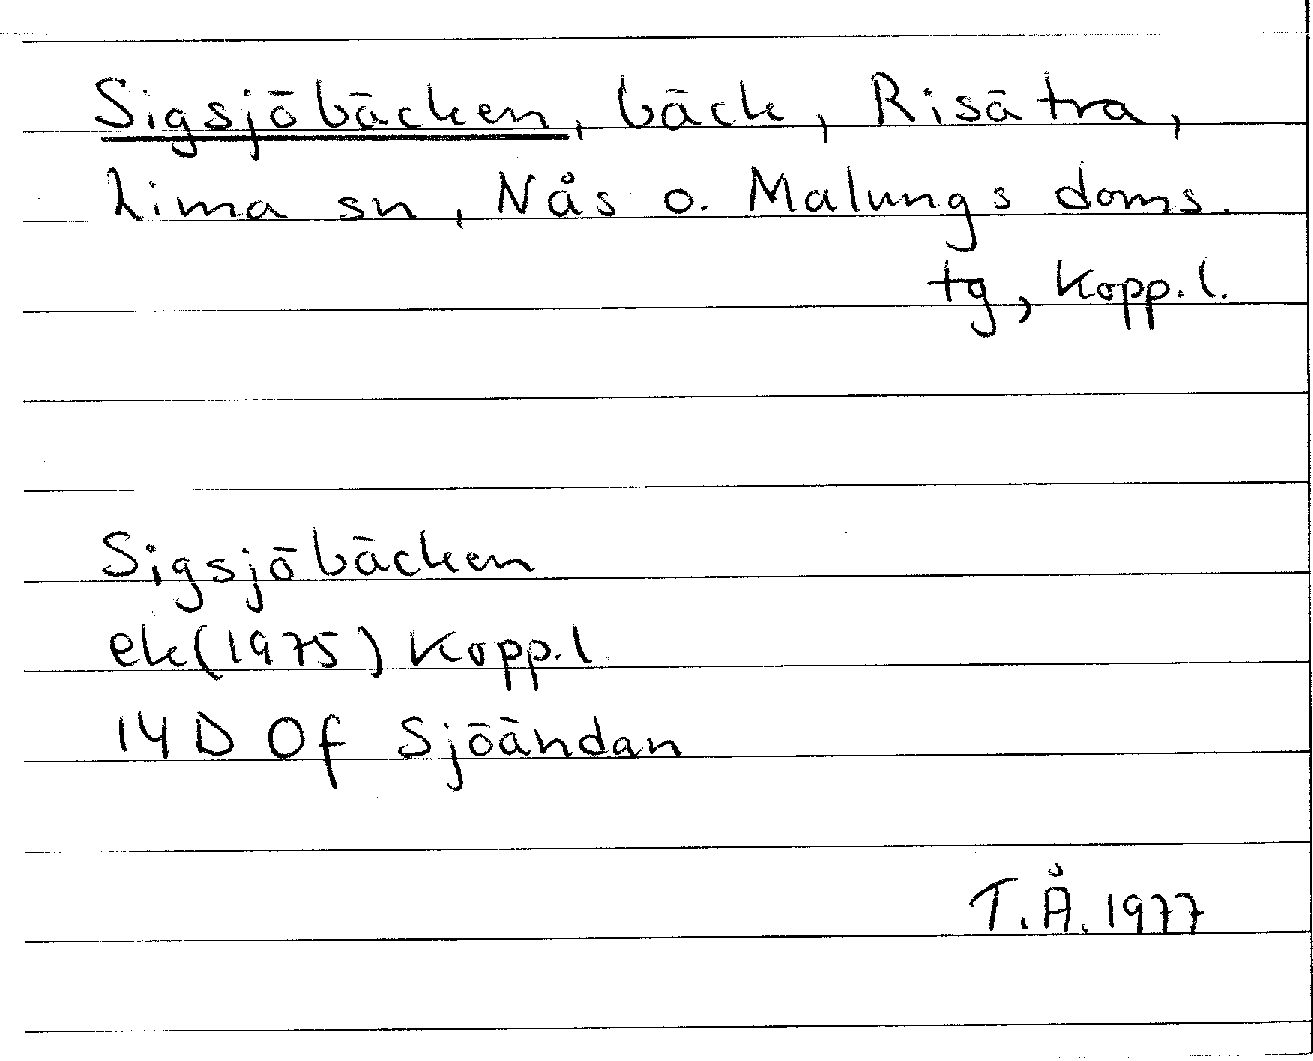 Sigsjöbäcken, bäck, Risätra,
Lima sn, Nås o. Malungs doms.
tg, Kopp.l.
Sigsjöbäcken
ek(1975) Kopp.l
14D 0f Sjöändan
T.Å. 1977